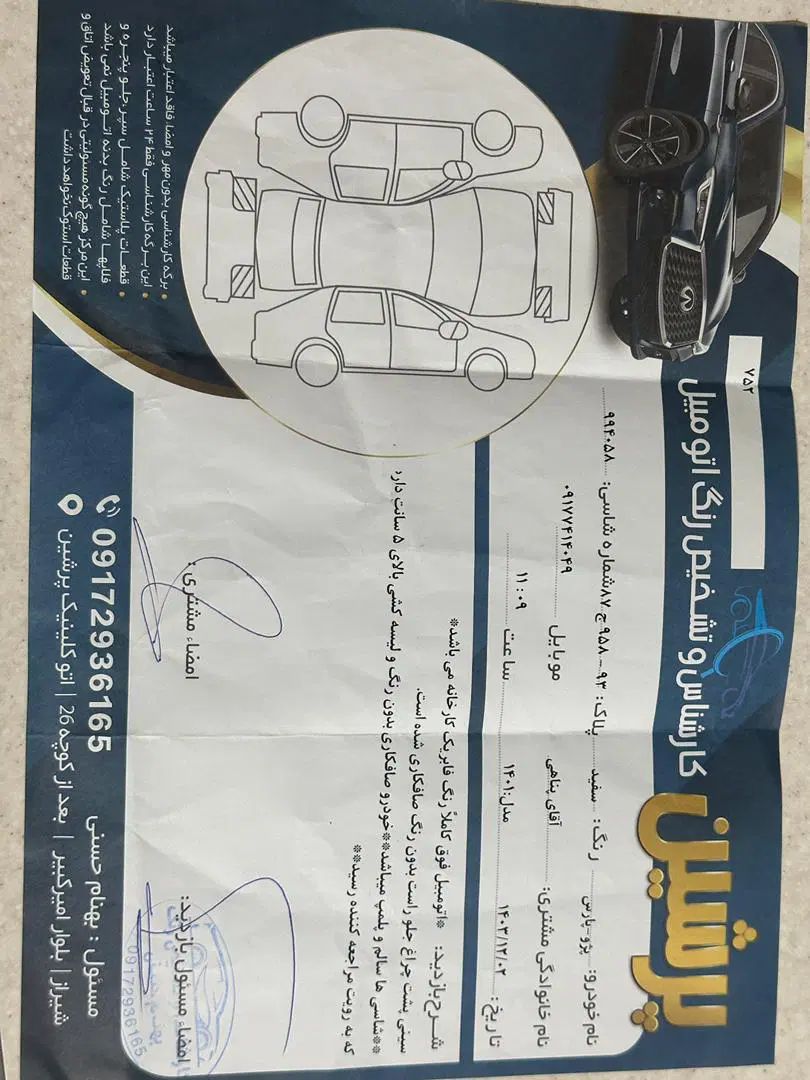 پرشین
کارشناس و تشخیص رنگ اتومبیل
۷۵۲
نام خودرو: پژو-پارس رنگ: سفید پلاک: ۹۳ - ۹۵۸ ج ۸۷ شماره شاسی: ۹۹۴۰۵۸
نام خانوادگی مشتری: آقای پناهی موبایل ۰۹۱۷۷۴۱۴۰۴۹
تاریخ: ۱۴۰۳/۱۲/۰۲ مدل: ۱۴۰۱ ساعت ۱۱:۰۹
شرح بازدید: *اتومبیل فوق کاملاً رنگ فابریک کارخانه می باشد*
سینی پشت چراغ جلو راست بدون رنگ صافکاری شده است.
**شاسی ها سالم و پلمپ میباشد**خودرو صافکاری بدون رنگ و لیسه کشی بالای ۵ سانت دارد
که به رویت مراجعه کننده رسید**
امضاء مسئول بازدید:
امضاء مشتری:
09172936165
برگه کارشناسی بدون مهر و امضاء فاقد اعتبار میباشد
این برگه کارشناسی فقط ۲۴ ساعت اعتبار دارد
قطعات پلاستیک شامل سپر جلو پنجره و
فلاپها شامل رنگ بدنه اتومبیل نمی باشد
این مرکز هیچ گونه مسئولیتی در قبال تعویض اتاق و
قطعات استوک نخواهد داشت
مسئول : بهنام حسنی 09172936165
شیراز | بلوار امیرکبیر | بعد از کوچه 26 | اتو کلینیک پرشین